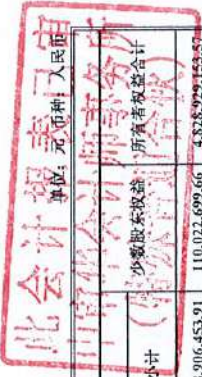 此会计报表已审
会计师事务所
单位：元 币种：人民币
小计 少数股东权益 所有者权益合计
,906,453.91 110,022,699.66 4,828,929,153.57